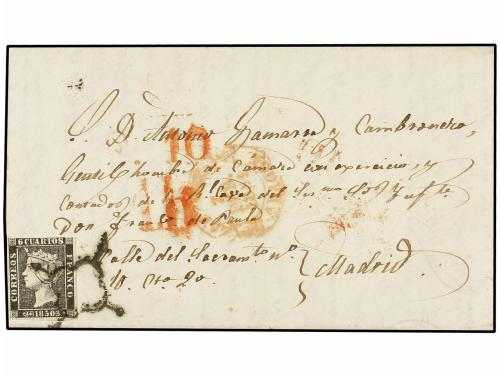 S. D. Antonio Gamarra y Cambronero,
Gentil hombre de Camara con exercicio, y
Contador de la Rl. Casa del Sermo. Sor. Ynfte.
Don Franco. de Paula
Calle del Sacramto. nº.
10. cto. 2º.
Madrid
10
6 CUARTOS
CORREOS
FRANCO
1850